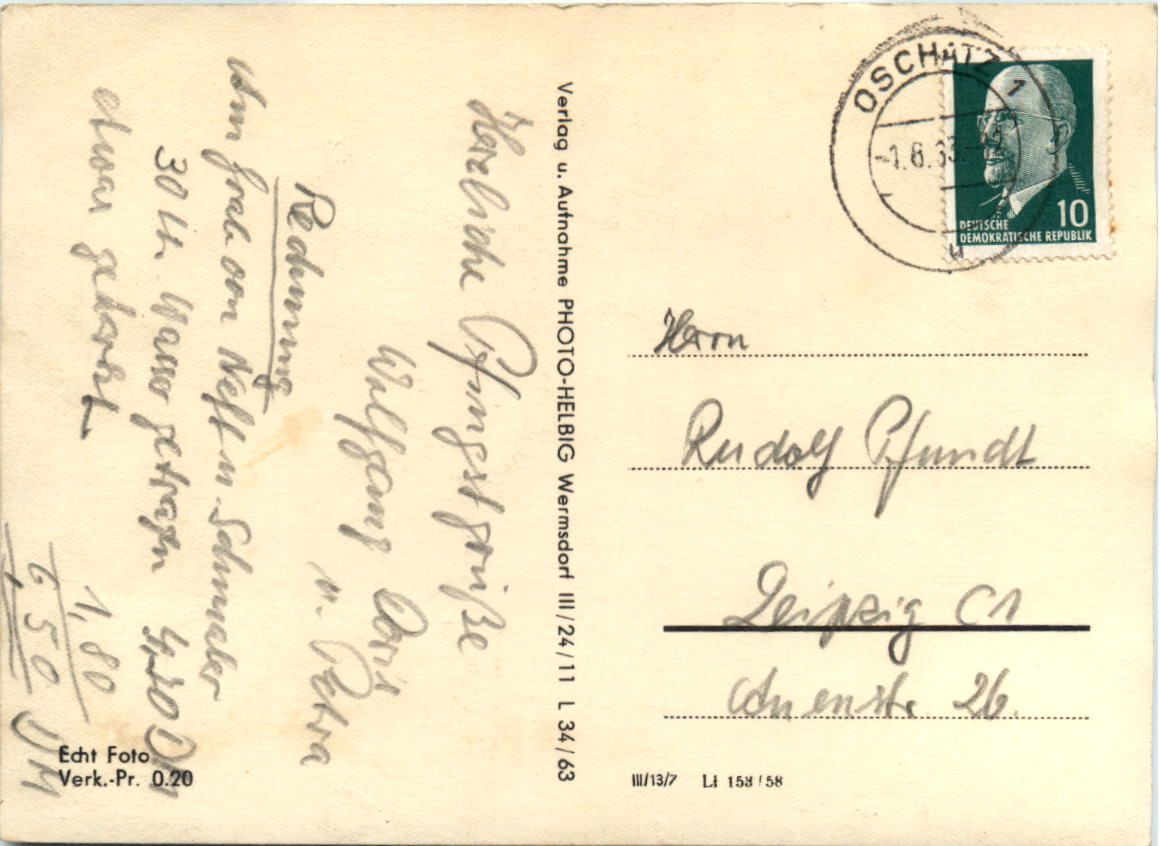 Herzliche Pfingstgrüße
Wolfgang Doris
u. Petra
Rechnung
Am Grab von Neff u. Schmaler
30 Ltr. Wasser getragen 4,70 DM
etwas geharkt 1,80
6,50 DM
Echt Foto
Verk.-Pr. 0.20
Verlag u. Aufnahme PHOTO-HELBIG Wermsdorf III/24/11 L 34/63
OSCHATZ 1
-1.6.63.-
u
10
DEUTSCHE
DEMOKRATISCHE REPUBLIK
Herrn
Rudolf Pfundt
Leipzig C1
Auenstr. 26.
III/13/7 Li 153/58